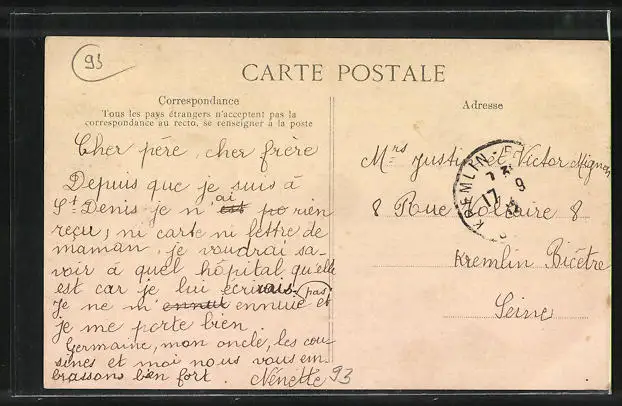 93
CARTE POSTALE
Correspondance
Tous les pays étrangers n'acceptent pas la
correspondance au recto, se renseigner à la poste
Cher père, cher frère
Depuis que je suis à
St Denis je n'ai est po rien
reçu, ni carte ni lettre de
maman, je voudrai sa-
voir à quel hôpital qu'elle
est car je lui écrirais. pas
Je ne m'ennui ennuie et
je me porte bien,
Germaine, mon oncle, les cou-
sines et moi nous vous em-
brassons bien fort. Nénette 93
Adresse
Mrs Justin et Victor Mignon
8 Rue Voltaire 8
Kremlin Bicêtre
Seine
KREMLIN-B
17 9